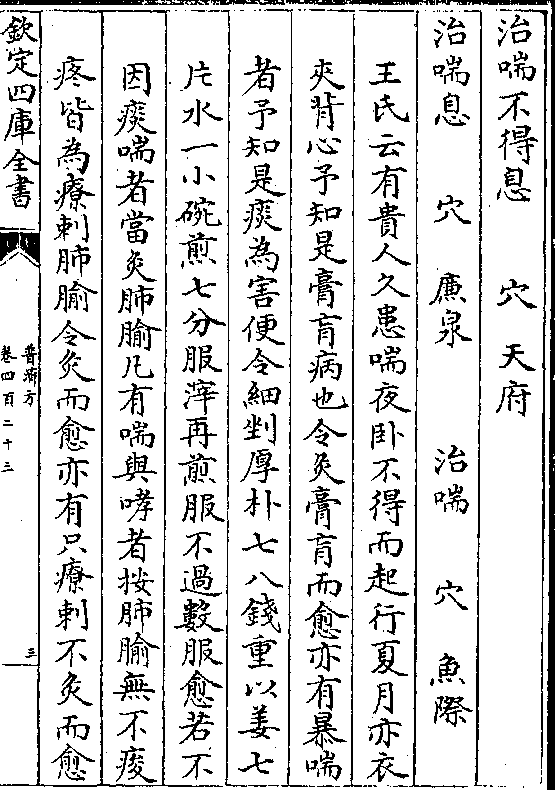 治喘不得息　穴　天府
治喘息　穴　廉泉　治喘　穴　魚際
王氏云有貴人久患喘夜卧不得而起行夏月亦衣
夾背心予知是膏肓病也令灸膏肓而愈亦有暴喘
者予知是痰為害便令細剉厚朴七八錢重以姜七
片水一小碗煎七分服滓再煎服不過數服愈若不
因痰喘者當灸肺腧凡有喘與哮者按肺腧無不痠
疼皆為療刺肺腧令灸而愈亦有只療刺不灸而愈
欽定四庫全書
普濟方
卷四百二十三
三